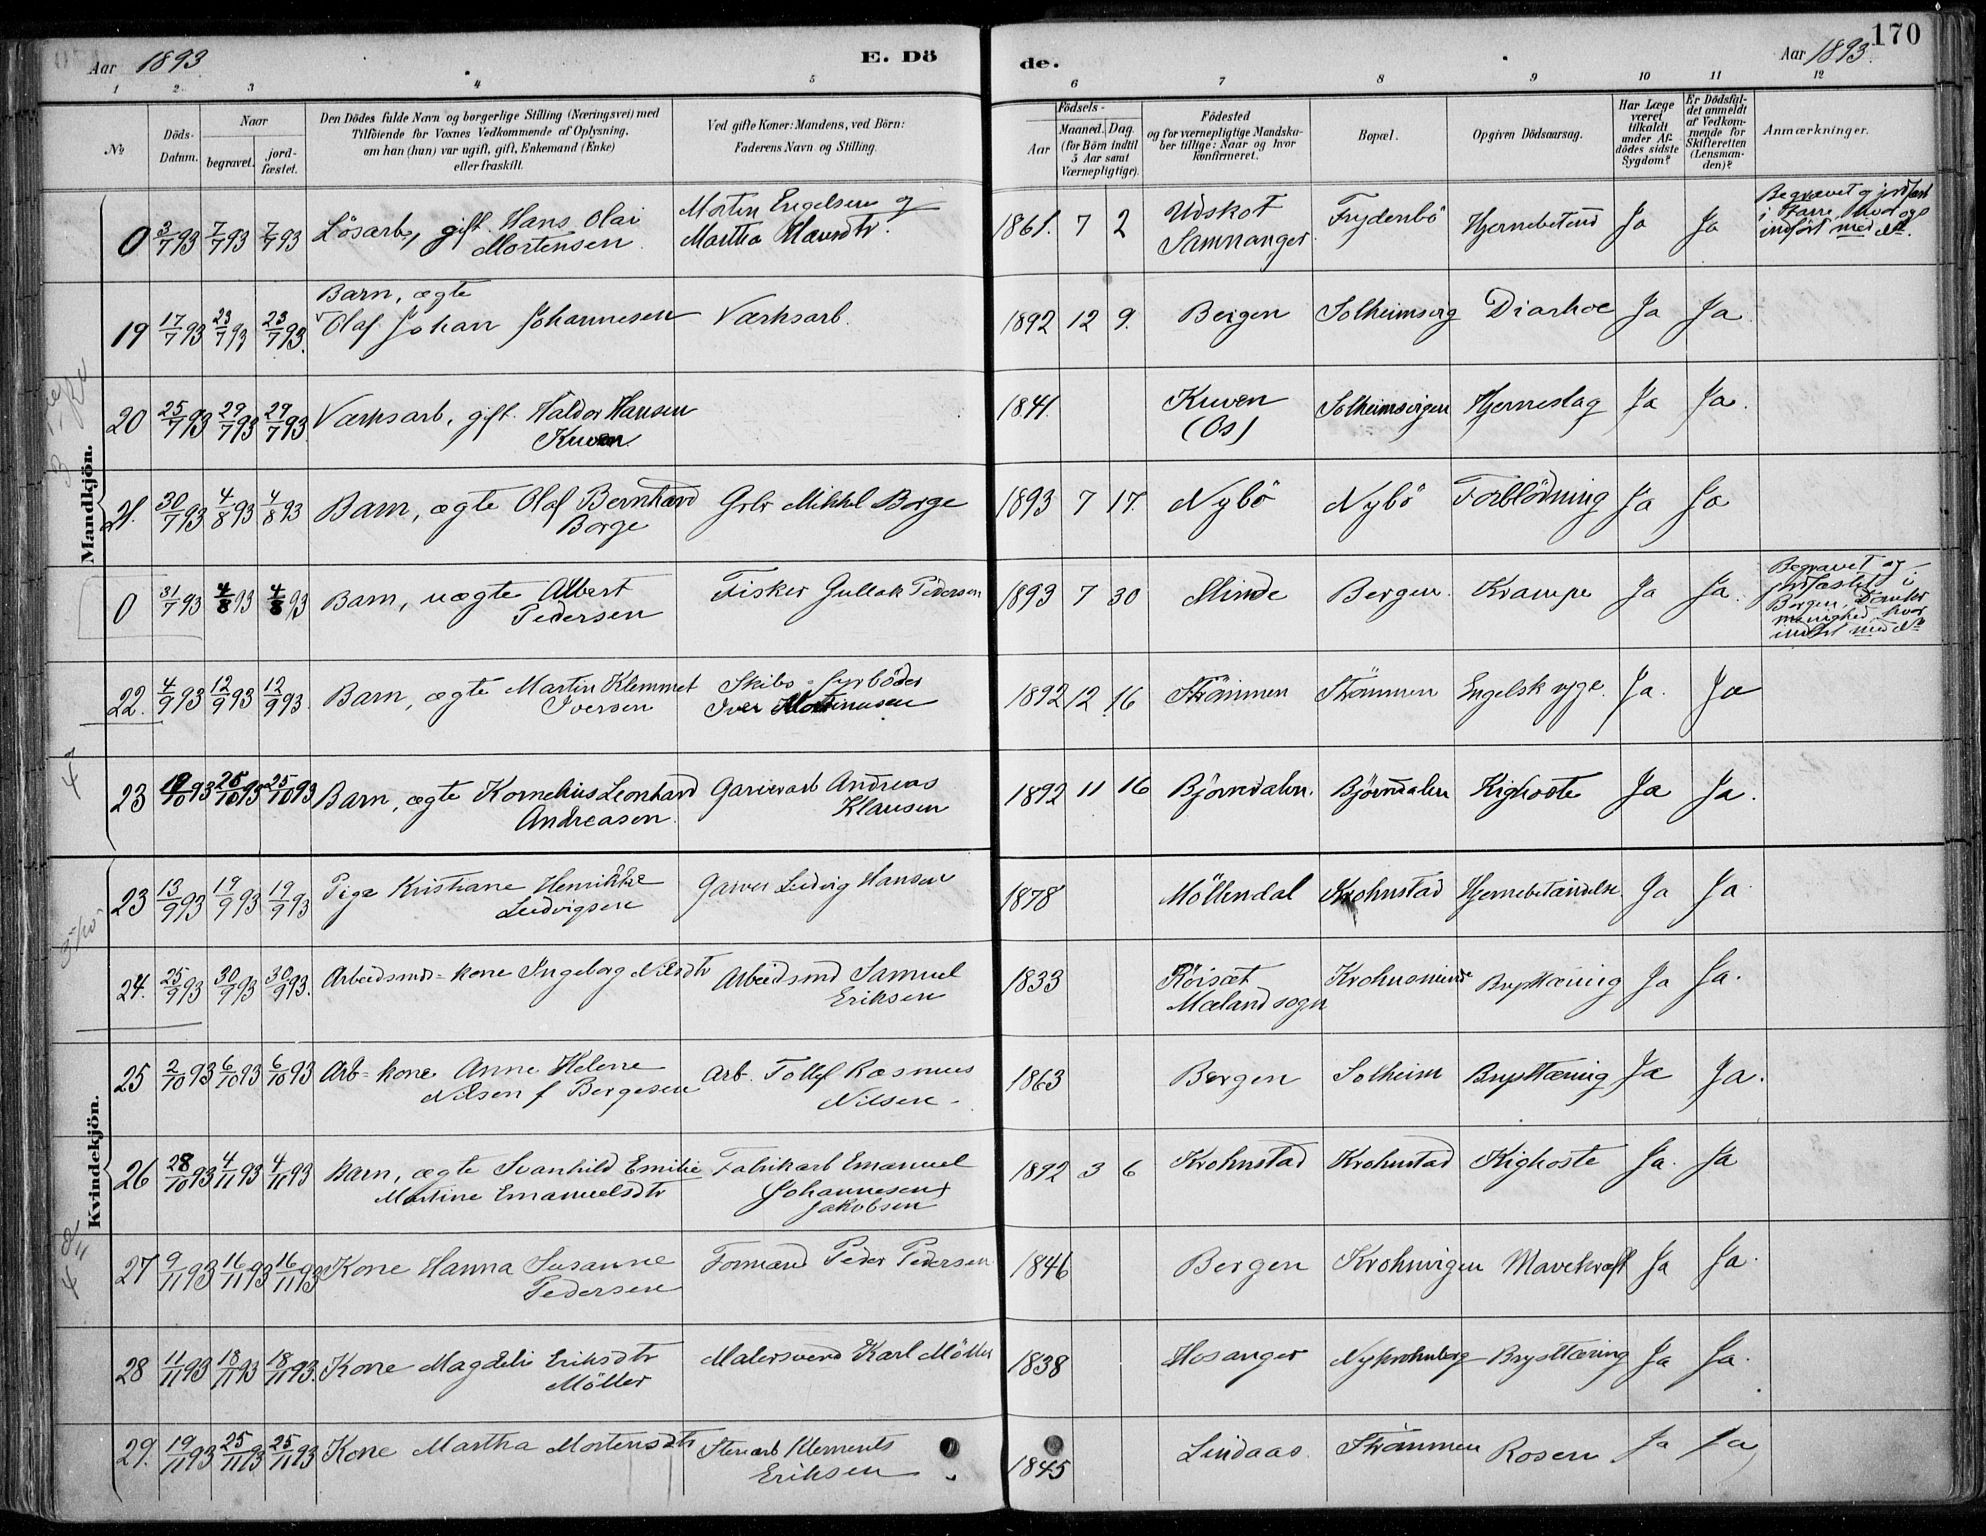 170
Aar 1893
E. Dö
de.
Aar 1893.
1 2 3 4 5 6 7 8 9 10 11 12
No
Döds-Datum.
Naar
begravet.
jord-fæstet.
Den Dödes fulde Navn og borgerlige Stilling (Næringsvei) med
Tilföiende for Voxnes Vedkommende af Oplysning,
om han (hun) var ugift, gift, Enkemand (Enke)
eller fraskilt.
Ved gifte Koner: Mandens, ved Börn:
Faderens Navn og Stilling.
Födsels-
Aar
Maaned. Dag
(for Börn indtil
5 Aar samt
Værnepligtige).
Födested
og for værnepligtige Mandska-
ber tillige: Naar og hvor
konfirmeret.
Bopæl.
Opgiven Dödsaarsag.
Har Læge
været
tilkaldt
under Af-
dödes sidste
Sygdom?
Er Dödsfal-
det anmeldt
af Vedkom-
mende for
Skifteretten
(Lensman-
den)?
Anmærkninger.
Mandkjön.
0 3/7 93 7/7 93 7/7 93 Lösarb, gift Hans Olai
Mortensen
Morten Engelsen og
Martha Hansdtr.
1861. 7 2 Udskot
Samnanger Frydenbö Hjernebetend Ja Ja
Begravet og jordfæst
i Starre, hvor og
indfört med No.
19 17/7 93 23/7 93 23/7 93. Barn, ægte
Olaf Johan Johannesen Værksarb.
1892 12 9. Bergen Solheimsvig Diarhoe Ja Ja
20 25/7 93 29/7 93 29/7 93 Værksarb, gift. Haldor Hansen
Kuven
1841. Kuven
(Os) Solheimsvigen Hjerneslag Ja Ja.
21. 30/7 93 4/8 93 4/8 93 Barn, ægte Olaf Bernhard
Borge
Grbr Mikkel Borge
1893 7 17. Nybö Nybö Forblödning Ja Ja
0 31/7 93 4/8 93 4/8 93 Barn, uægte Albert
Pedersen
Fisker Gullak Pedersen
1893 7 30 Minde Bergen. Krampe Ja Ja.
Begravet og
jordfæstet i
Bergen, Domk
menighed, hvor
indfört med No
22. 4/9 93 12/9 93 12/9 93. Barn, ægte Martin Klemmet
Iversen
Skibs-fyrböder
Iver Mortinusen
1892 12 16 Strömmen Strömmen Engelsk syge. Ja. Ja
23 19/10 93 25/10 93 25/10 93 Barn, ægte Kornelius Leonhard
Andreasen.
Garverarb Andreas
Klausen
1892 11 16 Björndalen. Björndalen Kighoste Ja Ja.
Kvindekjön.
23 13/9 93 19/9 93 19/9 93 Pige Kristiane Henrikke
Ludvigsen
Garver Ludvig Hansen
1878 Möllendal Krohnstad Hjernebetændelse. Ja Ja
24. 25/9 93 30/9 93 30/9 93. Arbeidsmds-kone Ingeborg Nilsdtr
Arbeidsmd Samuel
Eriksen
1833 Röisæt
Mæland sogn Krohnsminde Brysttæring Ja Ja.
25 2/10 93 6/10 93 6/10 93 Arb-kone Anne Helene
Nilsen f Bergesen
Arb. Tollef Rasmus
Nilsen
1863 Bergen Solheim Brysttæring Ja Ja.
26 28/10 93 4/11 93 4/11 93 Barn, ægte Svanhild Emilie
Martine Emanuelsdtr
Fabrikarb Emanuel
Johannesen
Jakobsen
1892 3 6 Krohnstad Krohnstad Kighoste Ja. Ja
27 9/11 93 16/11 93 16/11 93 Kone Hanna Susanne
Pedersen
Formand Peder Pedersen
1846 Bergen Krohnvigen Mavekræft Ja Ja.
28 11/11 93 18/11 93 18/11 93. Kone Magdeli Eriksdtr
Möller
Malersvend Karl Möller
1838 Hosanger Nykrohnborg Brysttæring Ja Ja.
29. 19/11 93 25/11 93 25/11 93 Kone Martha Mortensdtr
Stenarb Klements
Eriksen
1845 Lindaas Strömmen Rosen Ja Ja